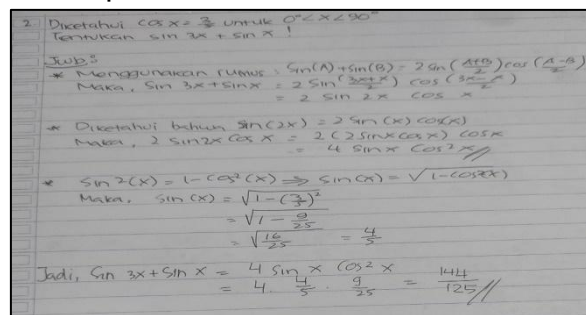 2. Diketahui cos x = 3/5 untuk 0° < x < 90°
Tentukan sin 3x + sin x !
Jwb :
* Menggunakan rumus : Sin(A) + Sin(B) = 2 Sin (A+B/2) cos (A-B/2)
Maka, Sin 3x + sin x = 2 Sin (3x+x/2) cos (3x-x/2)
= 2 Sin 2x cos x
* Diketahui bahwa Sin(2x) = 2 Sin(x) cos(x)
Maka, 2 sin2x cos x = 2 (2 Sinx cos x) cosx
= 4 Sinx Cos²x //
* Sin 2(x) = 1 - Cos²(x) ⟹ Sin(x) = √1-cos²(x)
Maka, Sin (x) = √1 - (3/5)²
= √1 - 9/25
= √16/25 = 4/5
Jadi, Sin 3x + Sin x = 4 Sin x Cos² x
= 4 . 4/5 . 9/25 = 144/125 //